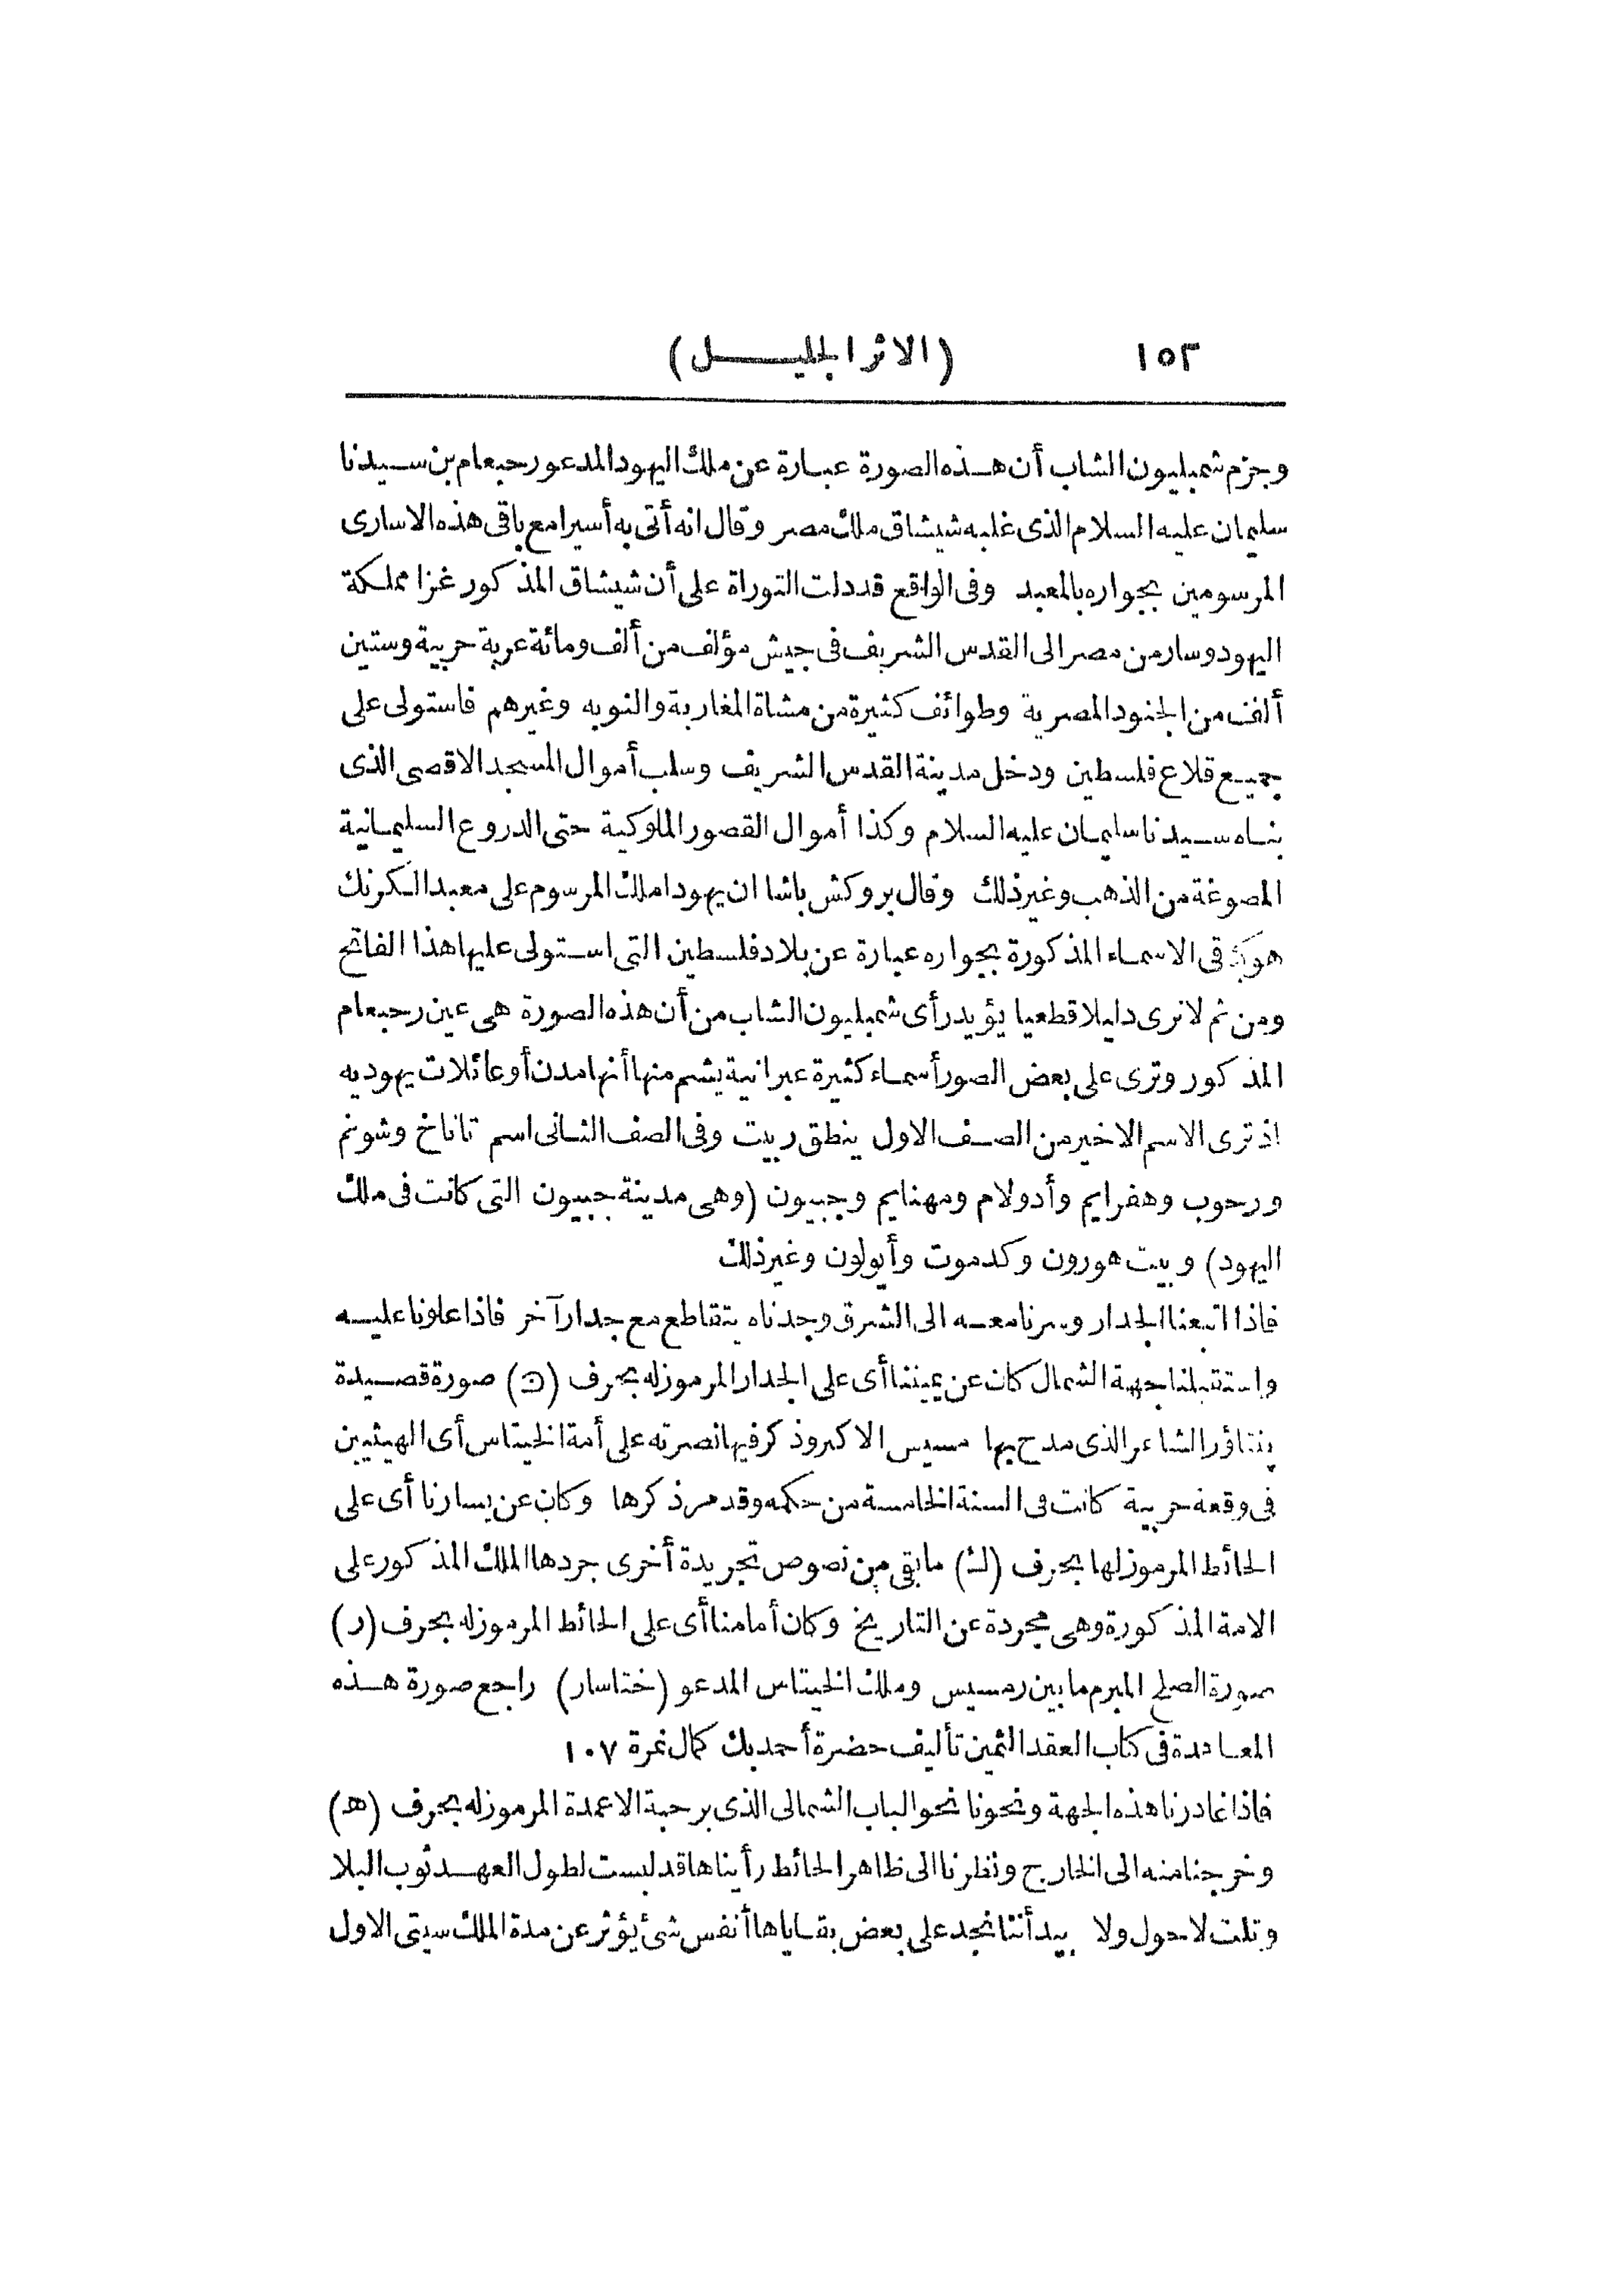 ١٥٢ (الاثر الجليل)
وجزم شمبليون الشاب أن هذه الصورة عبارة عن ملك اليهود المدعو رحبعام بن سيدنا
سليمان عليه السلام الذى غلبه شيشاق ملك مصر وقال انه أتى به أسيرا مع باقى هذه الاسارى
المرسومين بجواره بالمعبد وفى الواقع قد دلت التوراة على أن شيشاق المذكور غزا مملكة
اليهود وسار من مصر الى القدس الشريف فى جيش مؤلف من ألف ومائة عربة حربية وستين
ألف من الجنود المصرية وطوائف كثيرة من مشاة المغاربة والنوبه وغيرهم فاستولى على
جميع قلاع فلسطين ودخل مدينة القدس الشريف وسلب أموال المسجد الاقصى الذى
بناه سيدنا سليمان عليه السلام وكذا أموال القصور الملوكية حتى الدروع السليمانية
المصوغة من الذهب وغير ذلك وقال بروكش باشا ان يهودا ملك المرسوم على معبد الكرنك
هو كباقى الاسماء المذكورة بجواره عبارة عن بلاد فلسطين التى استولى عليها هذا الفاتح
ومن ثم لا نرى دليلا قطعيا يؤيد رأى شمبليون الشاب من أن هذه الصورة هى عين رحبعام
المذكور وترى على بعض الصور أسماء كثيرة عبرانية يشم منها أنها مدن أو عائلات يهوديه
اذ ترى الاسم الاخير من الصف الاول ينطق ربيت وفى الصف الثانى اسم تاناخ وشونم
ورحوب وهفرايم وأدولام ومهنايم وجبيون (وهى مدينة جبيون التى كانت فى ملك
اليهود) وبيت هورون وكدموت وأيولون وغير ذلك
فاذا اتبعنا الجدار وسرنا معه الى الشرق وجدناه يتقاطع مع جدار آخر فاذا علونا عليه
واستقبلنا جهة الشمال كان عن يميننا أى على الجدار المرموز له بحرف صورة قصيدة
بنتاؤر الشاعر الذى مدح بها مسيس الاكبر وذكر فيها نصرته على أمة الخيتاس أى الهيثيين
فى وقعة حربية كانت فى السنة الخامسة من حكمه وقد مر ذكرها وكان عن يسارنا أى على
الحائط المرموز لها بحرف (ك) ما بقى من نصوص تجريدة أخرى جردها الملك المذكور على
الامة المذكورة وهى مجردة عن التاريخ وكان أمامنا أى على الحائط المرموز له بحرف (ر)
صورة الصلح المبرم ما بين رمسيس وملك الخيتاس المدعو (ختاسار) راجع صورة هذه
المعاهدة فى كتاب العقد الثمين تأليف حضرة أحمد بك كمال نمرة ١٠٧
فاذا غادرنا هذه الجهة ونحونا نحو الباب الشمالى الذى برحبة الاعمدة المرموز له بحرف (هـ)
وخرجنا منه الى الخارج ونظرنا الى ظاهر الحائط رأيناها قد لبست لطول العهد ثوب البلا
وتلت لا حول ولا بيد أننا نجد على بعض بقاياها أنفس شئ يؤثر عن مدة الملك سيتى الاول